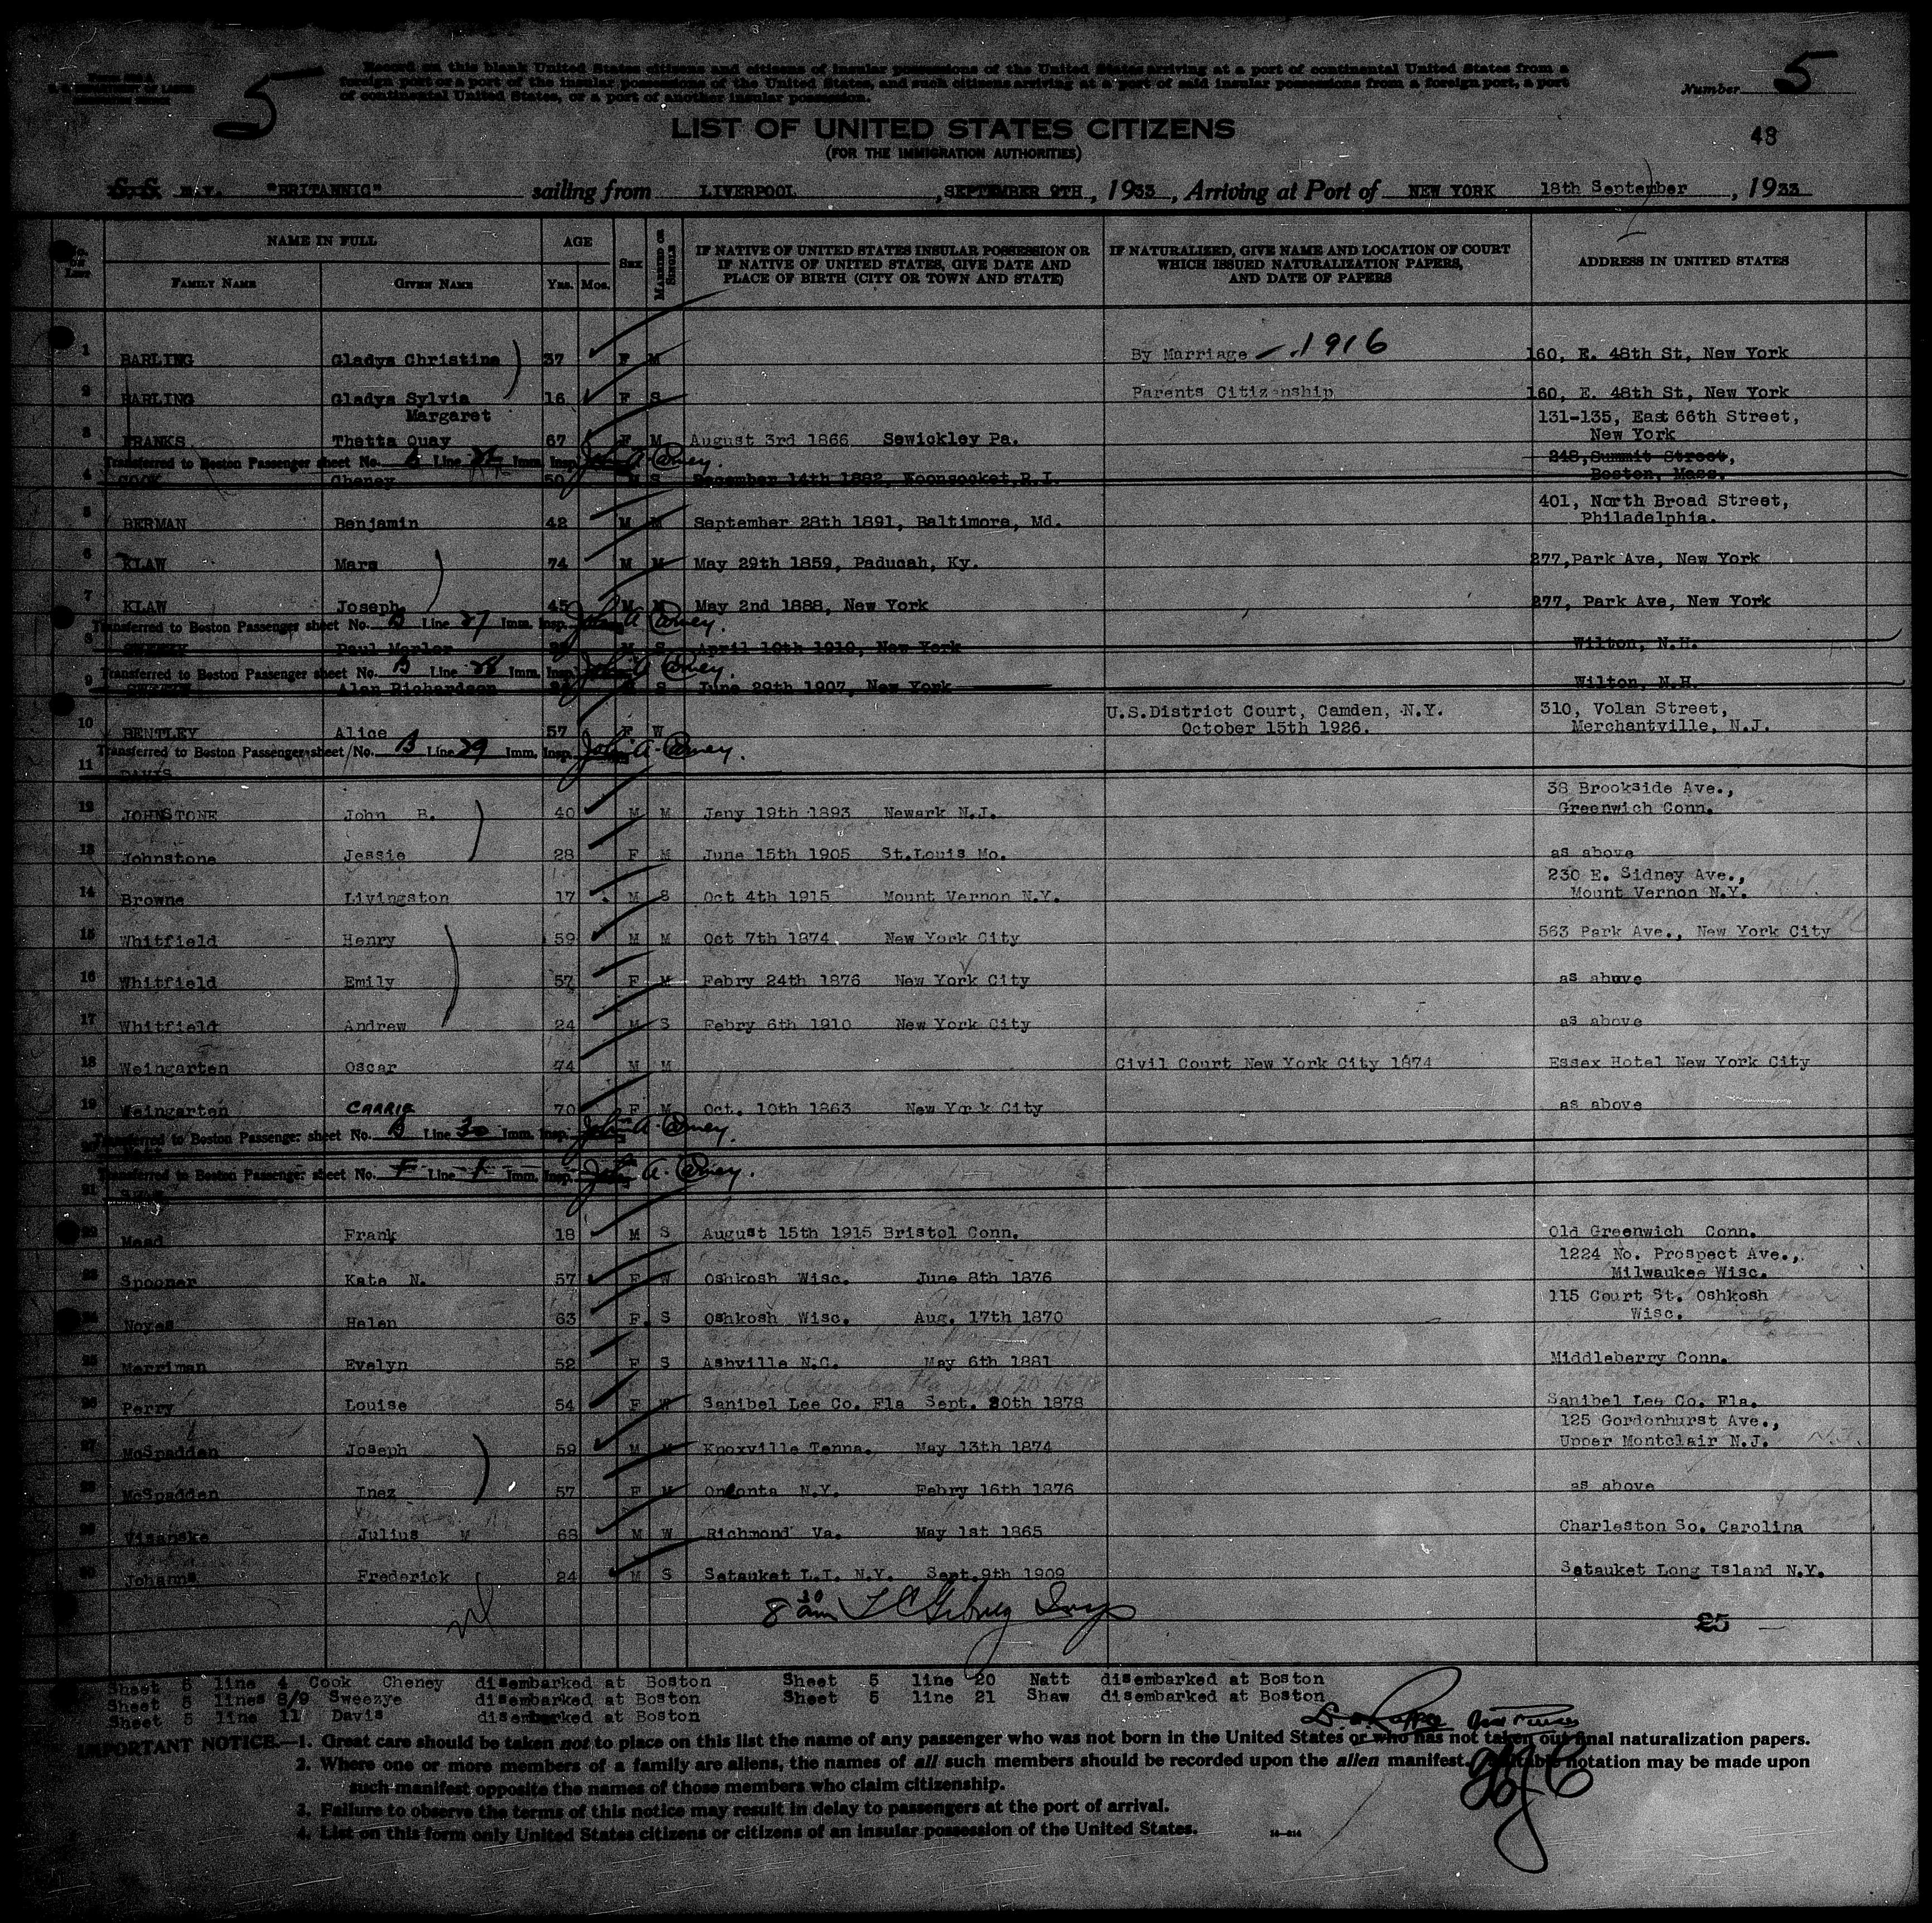 5
Record on this blank United States citizens and citizens of insular possessions of the United States arriving at a port of continental United States from a
foreign port or a port of the insular possessions of the United States, and such citizens arriving at a port of said insular possessions from a foreign port, a port
of continental United States, or a port of another insular possession.
Number 5
LIST OF UNITED STATES CITIZENS
(FOR THE IMMIGRATION AUTHORITIES)
48
S.S. M.V. "BRITANNIC" sailing from LIVERPOOL, SEPTEMBER 9TH, 1933, Arriving at Port of NEW YORK 18th September, 1933
No. on List NAME IN FULL AGE Sex MARRIED OR SINGLE IF NATIVE OF UNITED STATES INSULAR POSSESSION OR IF NATIVE OF UNITED STATES, GIVE DATE AND PLACE OF BIRTH (CITY OR TOWN AND STATE) IF NATURALIZED, GIVE NAME AND LOCATION OF COURT WHICH ISSUED NATURALIZATION PAPERS, AND DATE OF PAPERS ADDRESS IN UNITED STATES
FAMILY NAME GIVEN NAME Yrs. Mos.
1 BARLING Gladys Christina 37 F M By Marriage - 1916 160, E. 48th St, New York
2 BARLING Gladys Sylvia Margaret 16 F S Parents Citizenship 160, E. 48th St, New York
3 FRANKS Thetta Quay 67 F M August 3rd 1866 Sewickley Pa. 131-135, East 66th Street, New York
Transferred to Boston Passenger sheet No. B Line Imm. Insp. John A. Carney.
4 COOK Cheney 50 M S December 14th 1882, Woonsocket, R.I. 248, Summit Street, Boston, Mass.
5 BERMAN Benjamin 42 M M September 28th 1891, Baltimore, Md. 401, North Broad Street, Philadelphia.
6 KLAW Marc 74 M M May 29th 1859, Paducah, Ky. 277, Park Ave, New York
7 KLAW Joseph 45 M M May 2nd 1888, New York 277, Park Ave, New York
Transferred to Boston Passenger sheet No. B Line 27 Imm. Insp. John A Carney.
8 Paul M S April 10th 1910, New York Wilton, N.H.
Transferred to Boston Passenger sheet No. B Line 28 Imm. Insp. John A Carney.
9 Alan Richardson M S June 29th 1907, New York Wilton, N.H.
10 BENTLEY Alice 57 F W U.S.District Court, Camden, N.Y. October 15th 1926. 310, Volan Street, Merchantville, N.J.
Transferred to Boston Passenger sheet No. B Line 29 Imm. Insp. John A. Carney.
11 DAVIS
12 JOHNSTONE John B. 40 M M Jany 19th 1893 Newark N.J. 38 Brookside Ave., Greenwich Conn.
13 Johnstone Jessie 28 F M June 15th 1905 St.Louis Mo. as above
14 Browne Livingston 17 M S Oct 4th 1915 Mount Vernon N.Y. 230 E. Sidney Ave., Mount Vernon N.Y.
15 Whitfield Henry 59 M M Oct 7th 1874 New York City 563 Park Ave., New York City
16 Whitfield Emily 57 F M Febry 24th 1876 New York City as above
17 Whitfield Andrew 24 M S Febry 6th 1910 New York City as above
18 Weingarten Oscar 74 M M Civil Court New York City 1874 Essex Hotel New York City
19 Weingarten CARRIE 70 F M Oct. 10th 1863 New York City as above
Transferred to Boston Passenger sheet No. B Line 30 Imm. Insp. John A. Carney.
Transferred to Boston Passenger sheet No. F Line 1 Imm. Insp. John A. Carney.
21
22 Mead Frank 18 M S August 15th 1915 Bristol Conn. Old Greenwich Conn.
23 Spooner Kate N. 57 F W Oshkosh Wisc. June 8th 1876 1224 No. Prospect Ave., Milwaukee Wisc.
24 Noyes Helen 63 F S Oshkosh Wisc. Aug. 17th 1870 115 Court St. Oshkosh Wisc.
25 Merriman Evelyn 52 F S Ashville N.C. May 6th 1881 Middleberry Conn.
26 Perry Louise 54 F W Sanibel Lee Co. Fla Sept. 20th 1878 Sanibel Lee Co. Fla.
27 McSpadden Joseph 59 M M Knoxville Tenna. May 13th 1874 125 Gordonhurst Ave., Upper Montclair N.J.
28 McSpadden Inez 57 F M Oneonta N.Y. Febry 16th 1876 as above
29 Visanska Julius M 68 M W Richmond Va. May 1st 1865 Charleston So. Carolina
30 Johanns Frederick 24 M S Setauket L.I. N.Y. Sept.9th 1909 Setauket Long Island N.Y.
8 30 am
25
Sheet 5 line 4 Cook Cheney disembarked at Boston Sheet 5 line 20 Natt disembarked at Boston
Sheet 5 lines 8/9 Sweezye disembarked at Boston Sheet 5 line 21 Shaw disembarked at Boston
Sheet 5 line 11 Davis disembarked at Boston
IMPORTANT NOTICE.—1. Great care should be taken not to place on this list the name of any passenger who was not born in the United States or who has not taken out final naturalization papers.
2. Where one or more members of a family are aliens, the names of all such members should be recorded upon the alien manifest. Suitable notation may be made upon
such manifest opposite the names of those members who claim citizenship.
3. Failure to observe the terms of this notice may result in delay to passengers at the port of arrival.
4. List on this form only United States citizens or citizens of an insular possession of the United States.